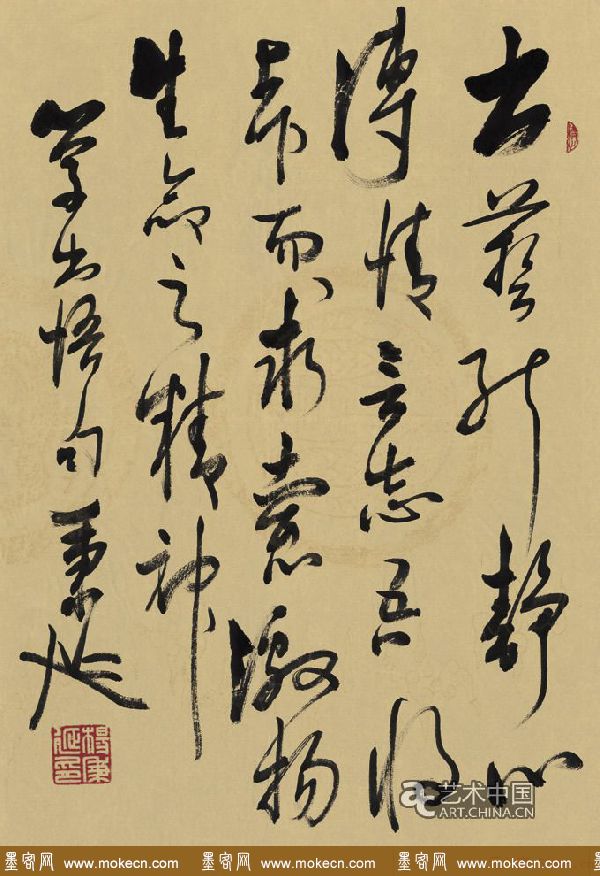 书藝能静心
傳情言志吾将
常而求索激扬
生命之精神
學书悟句 秉延
艺术中国
ART.CHINA.CN
墨客网 www.mokecn.com 墨客网 www.mokecn.com 墨客网 www.mokecn.com